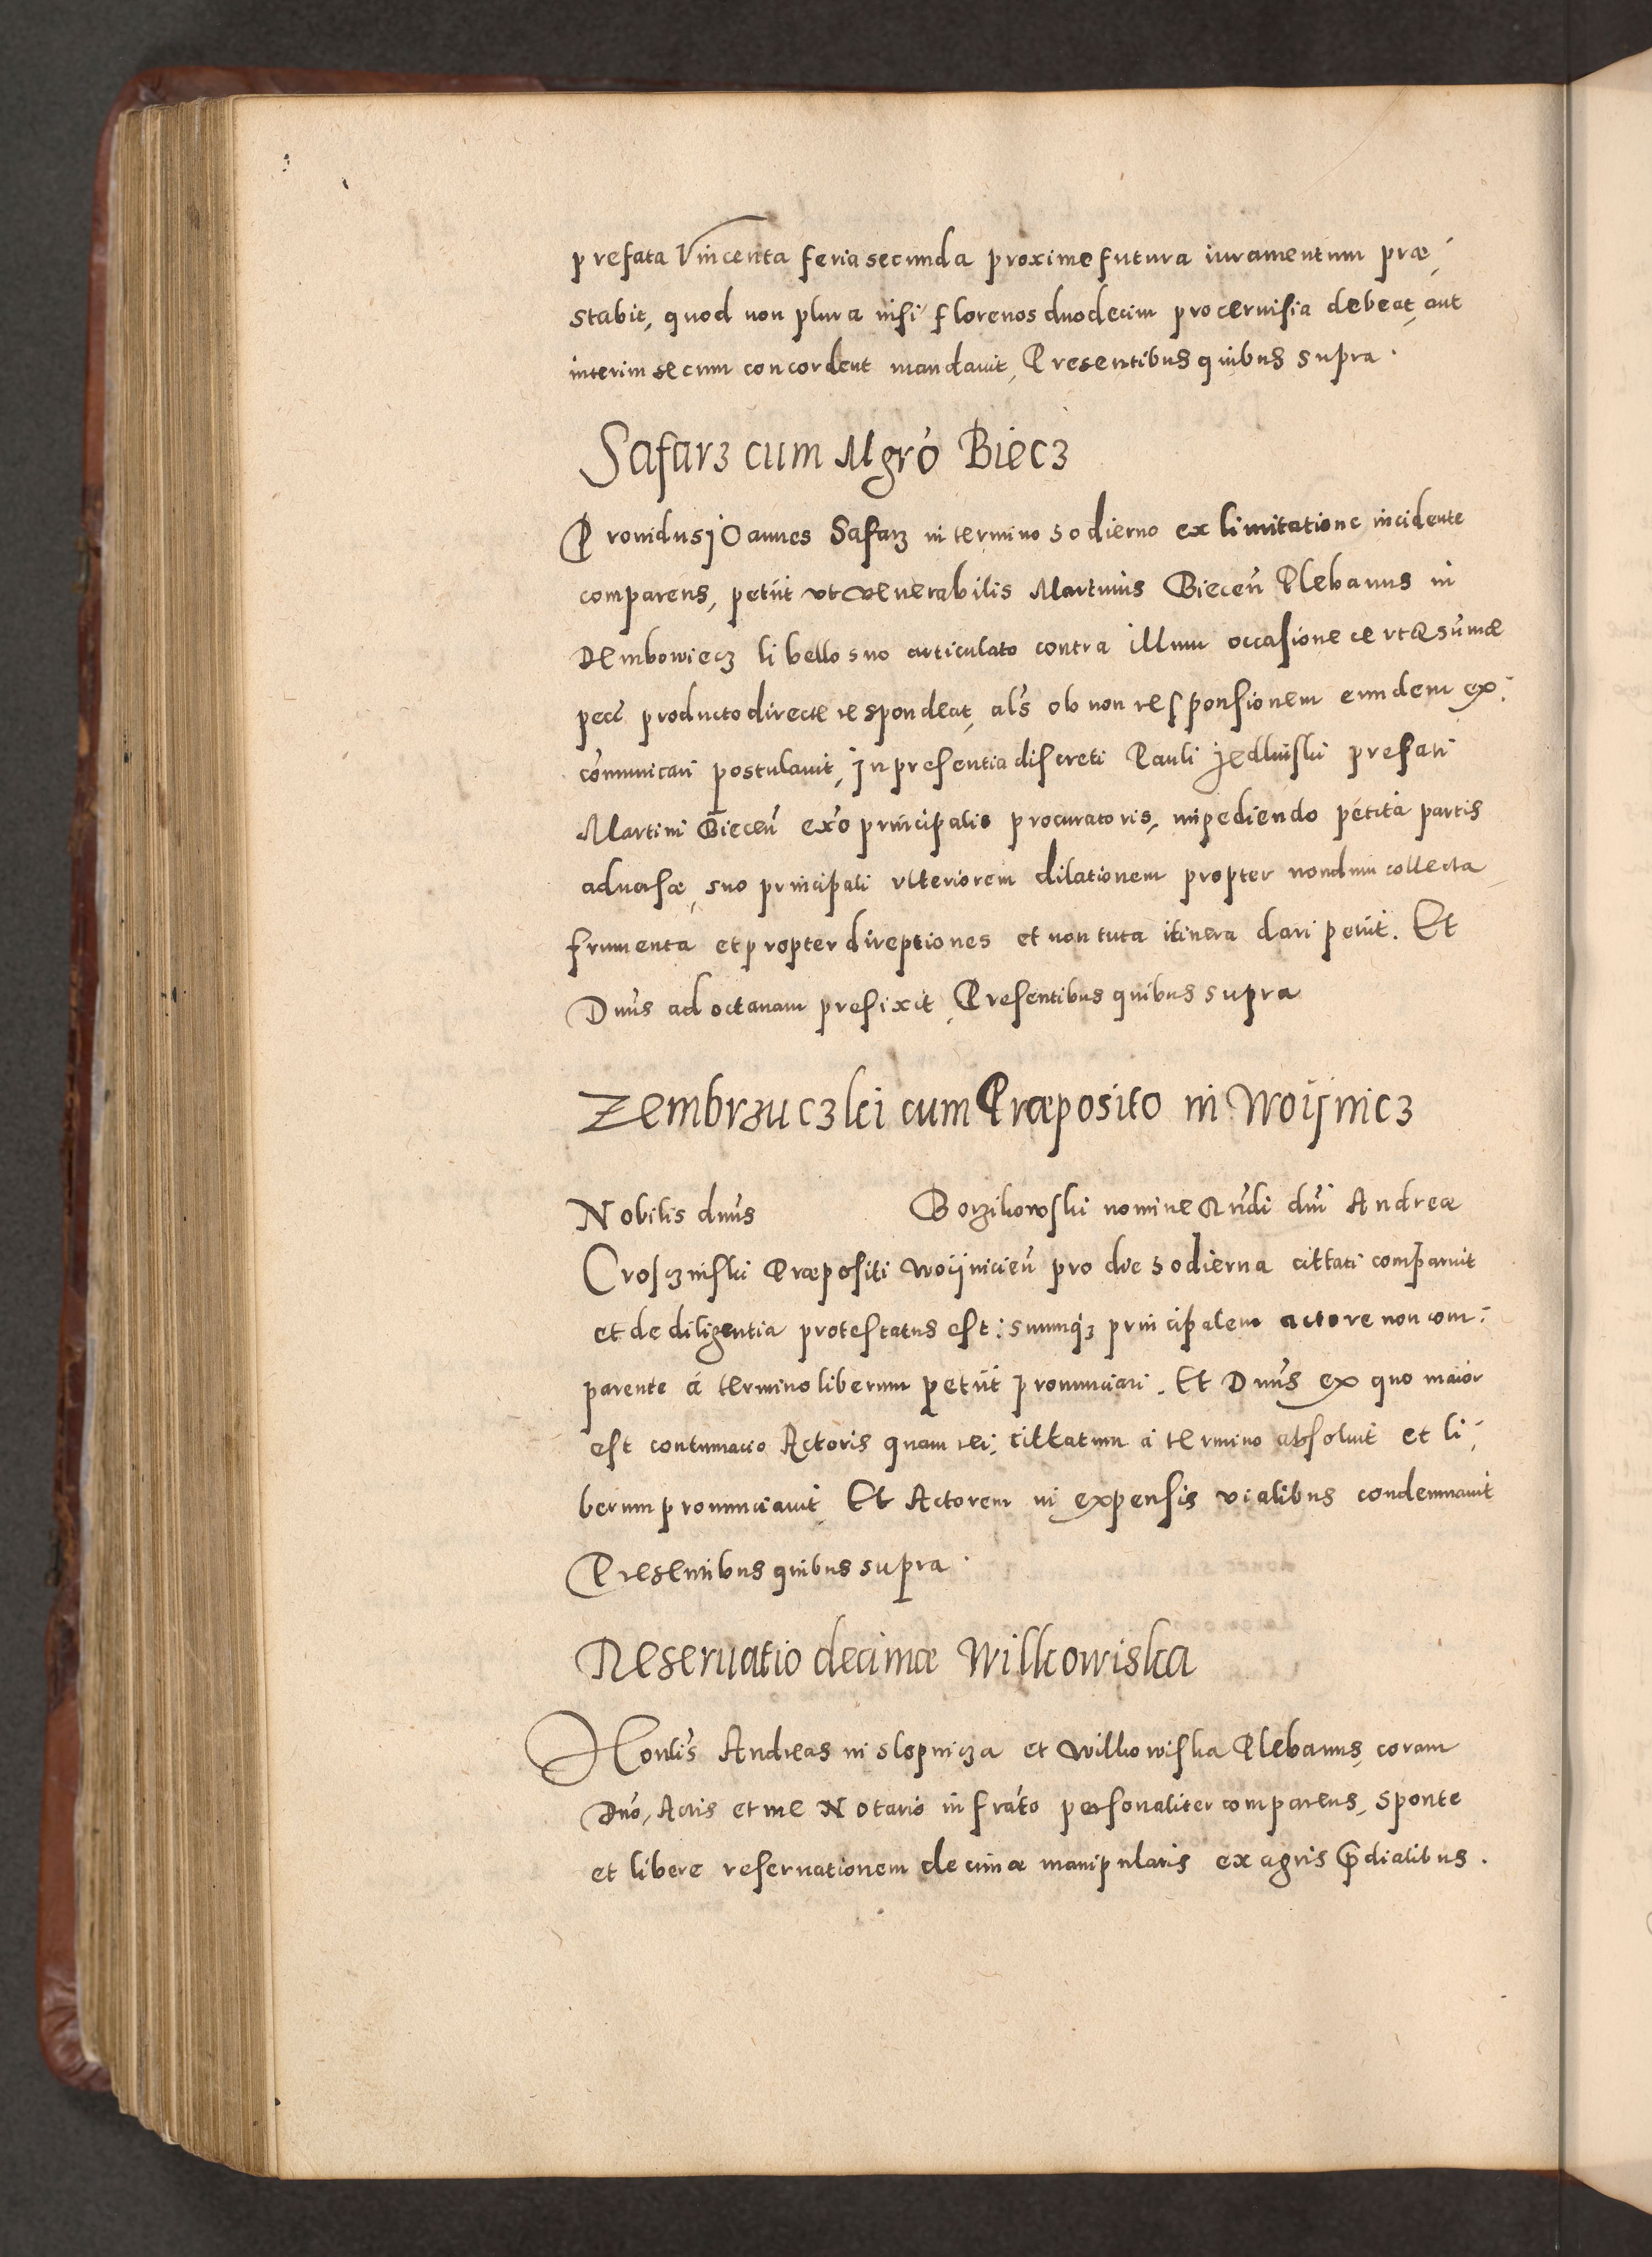 prefata Vincenta feria secunda proxime futura iuramentum præ-
stabit, quod non plura nisi florenos duodecim pro cervisia debeat, aut
interim secum concordent mandavit, Presentibus quibus supra.
Safarz cum Mgro Biecz
Providus Joannes Safarz in termino hodierno ex limitatione incidente
comparens, petiit ut venerabilis Martinus Biecen̄ Plebanus in
Dembowiecz libello suo articulato contra illum occasione certæ sumæ
pecc̄ producto directe respondeat, als̄ ob non responsionem eundem ex-
cōmunicari postulavit, In presentia discreti Pauli Jedlinski prefati
Martini Biecen̄ ex̄o principalis procuratoris, impediendo petita partis
adversæ, suo principali ulteriorem dilationem propter nondum collecta
frumenta et propter direptiones et non tuta itinera dari petiit. Et
Dn̄us ad octavam prefixit, Presentibus quibus supra
Zembrzuczki cum Præposito in Woijnicz
Nobilis dn̄us Borzikowski nomine Rn̄di dn̄i Andreæ
Crosczniski Præpositi Woijnicien̄ pro die hodierna cittati comparuit
et de diligentia protestatus est: suumq3 principalem actore non com-
parente á termino liberum petiit pronunciari. Et Dn̄us ex quo maior
est contumacia Actoris quam rei, cittatum á termino absolvit et li-
berum pronunciavit, Et Actorem in expensis vialibus condemnavit
Presentibus quibus supra.
Reservatio decimæ Wilkowiska
Honl̄is Andreas in Slopnicza et Wilkowiska Plebanus, coram
Dn̄o, Actis et me Notario infrāto personaliter comparens, sponte
et libere reservationem decimæ manipularis ex agris p̄dialibus.